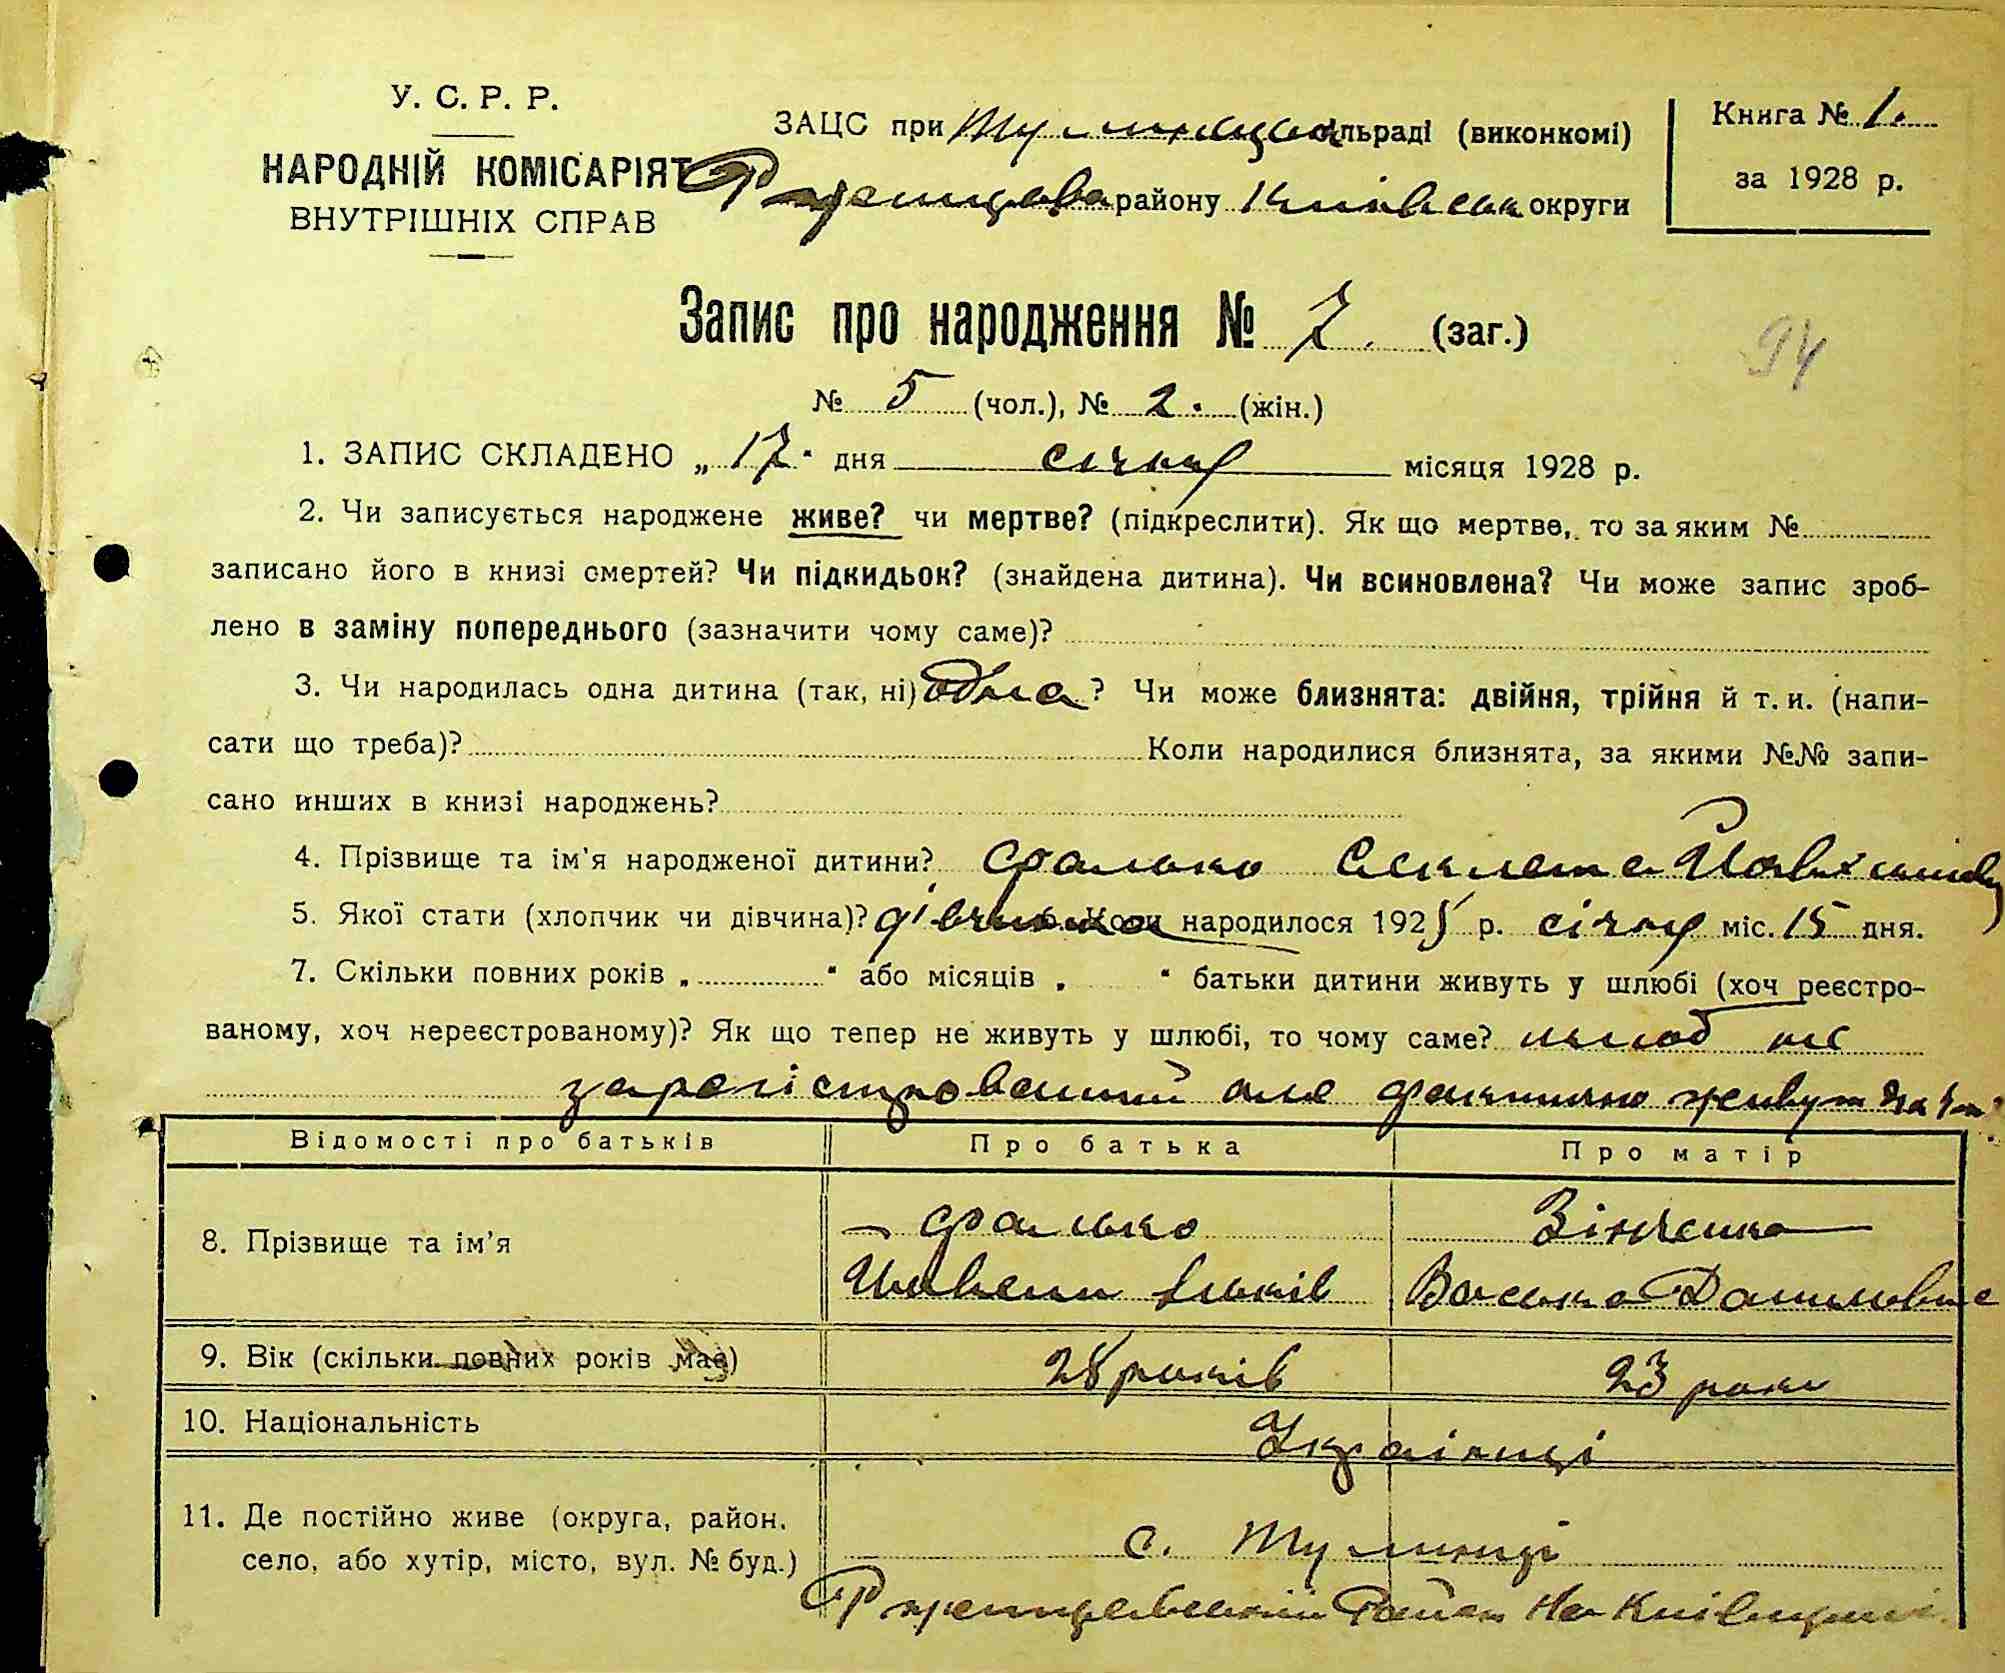 У. С. Р. Р.
НАРОДНІЙ КОМІСАРІЯТ
ВНУТРІШНІХ СПРАВ
ЗАЦС при сільраді (виконкомі)
району округи
Книга № 1.
за 1928 р.
Запис про народження № 7. (заг.)
94
№ 5 (чол.), № 2. (жін.)
1. ЗАПИС СКЛАДЕНО „ 17 " дня січня місяця 1928 р.
2. Чи записується народжене живе? чи мертве? (підкреслити). Як що мертве, то за яким №
записано його в книзі смертей? Чи підкидьок? (знайдена дитина). Чи всиновлена? Чи може запис зроб-
лено в заміну попереднього (зазначити чому саме)?
3. Чи народилась одна дитина (так, ні) одна? Чи може близнята: двійня, трійня й т. и. (напи-
сати що треба)? Коли народилися близнята, за якими №№ запи-
сано инших в книзі народжень?
4. Прізвище та ім'я народженої дитини? Фалько
5. Якої стати (хлопчик чи дівчина)? дівчинка Коли народилося 192 р. січня міс. 15 дня.
7. Скільки повних років „ " або місяців „ " батьки дитини живуть у шлюбі (хоч реєстро-
ваному, хоч нереєстрованому)? Як що тепер не живуть у шлюбі, то чому саме? шлюб не
зарегістрований але фактично живуть
Відомості про батьків Про батька Про матір
8. Прізвище та ім'я Фалько Зінченко
Васька Даниловна
9. Вік (скільки повних років має) 28 років 23 роки
10. Національність Українці
11. Де постійно живе (округа, район, с. Тулинці
село, або хутір, місто, вул. № буд.) Ржищевський Район на Київщині